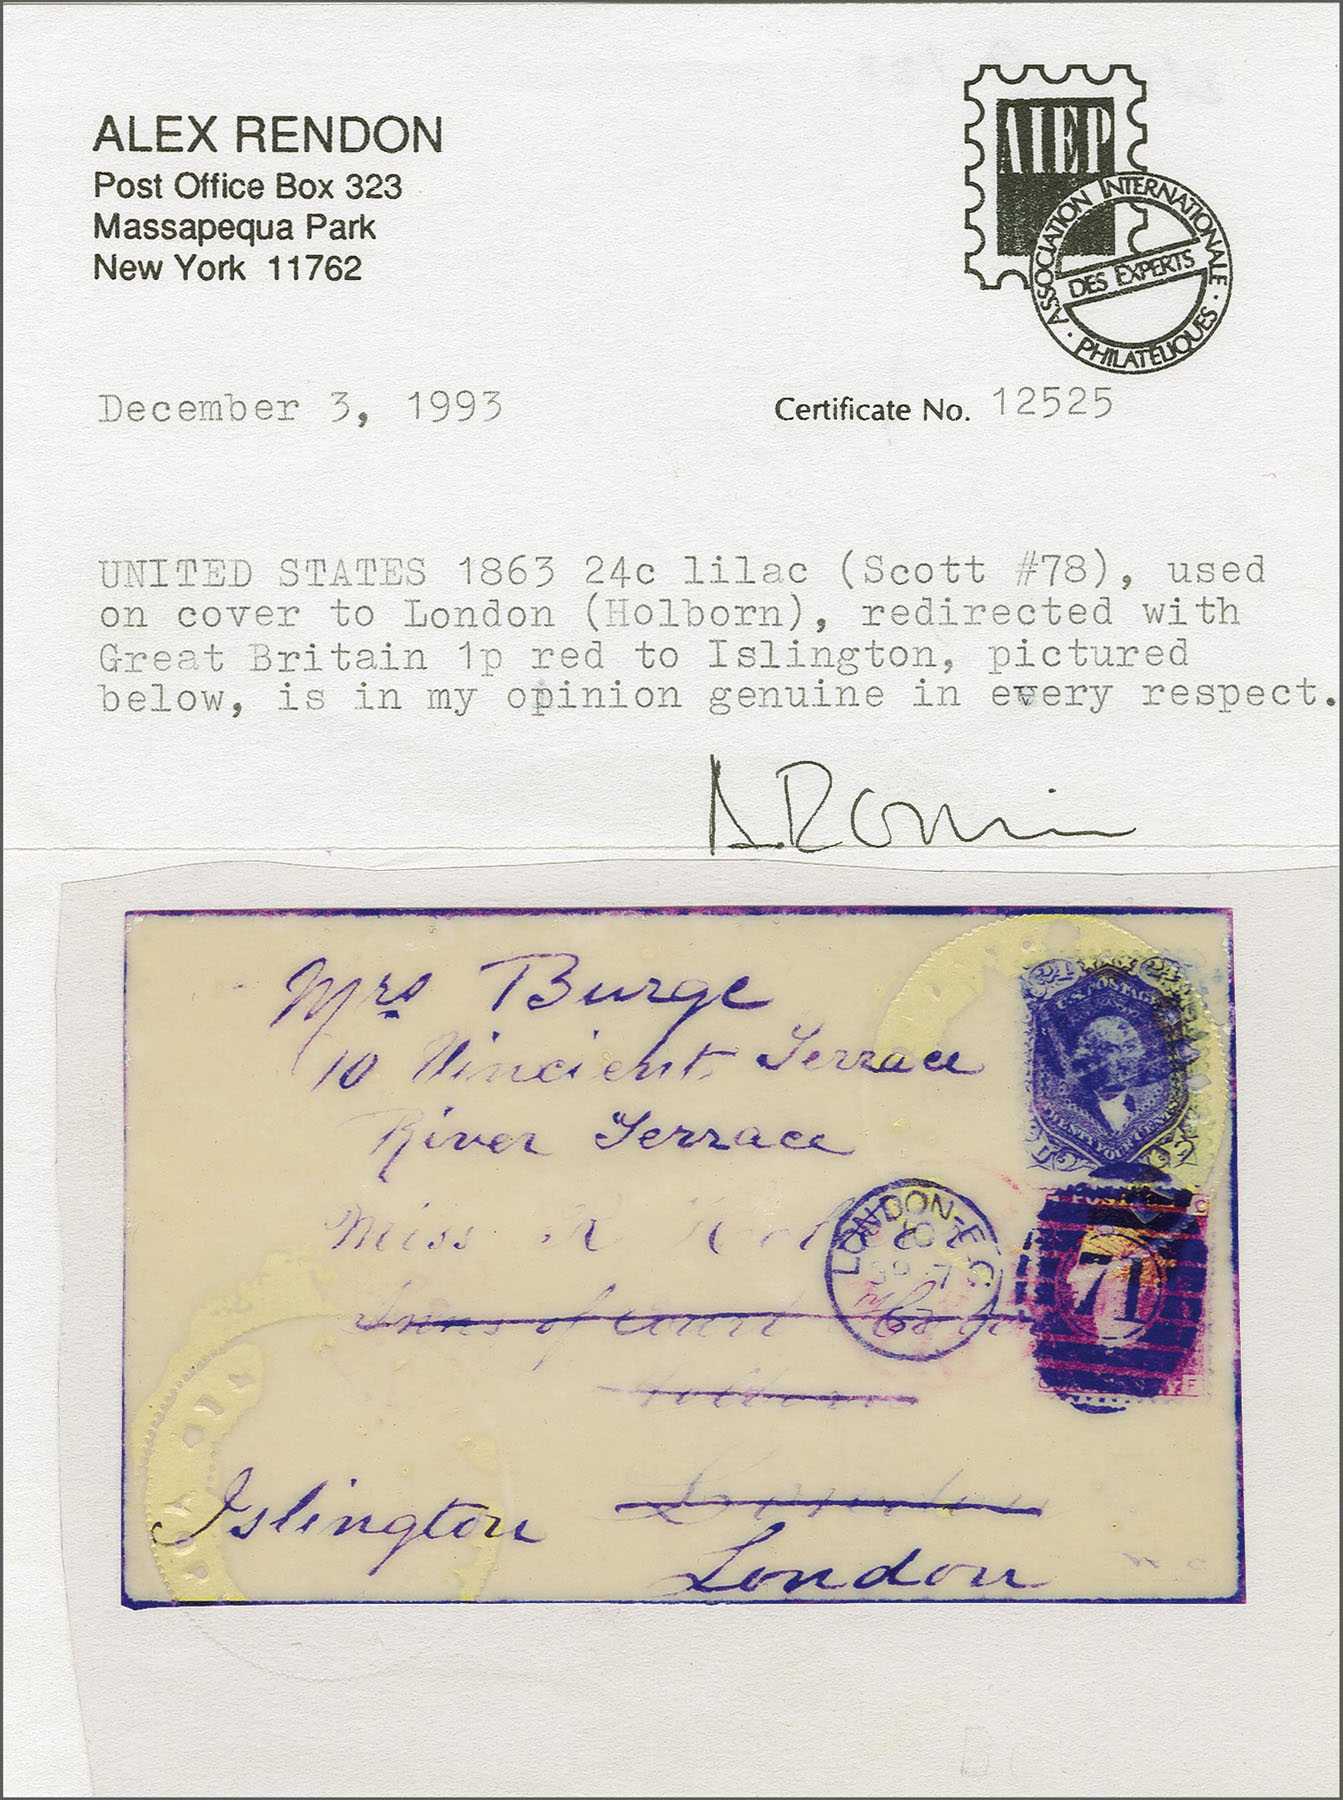 ALEX RENDON
Post Office Box 323
Massapequa Park
New York 11762
AIEP
ASSOCIATION INTERNATIONALE
DES EXPERTS
PHILATÉLIQUES
December 3, 1993
Certificate No. 12525
UNITED STATES 1863 24c lilac (Scott #78), used
on cover to London (Holborn), redirected with
Great Britain 1p red to Islington, pictured
below, is in my opinion genuine in every respect.
Mrs Burge
10 Vincient Terrace
River Terrace
Miss R
Inns of Court
Holborn
London
Islington
London
U.S. POSTAGE
LONDON-E.C
71